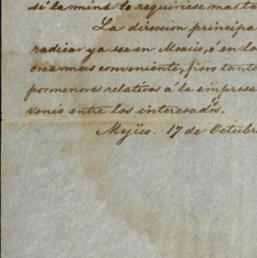 si la mina lo requiriese mas ta
La direccion principa
radicar ya sea en Mexico, ó en lo
mas conveniente, pero tanto
pormenores relativos á la empresa
venio entre los interesados.
Mejico. 17 de Octubr